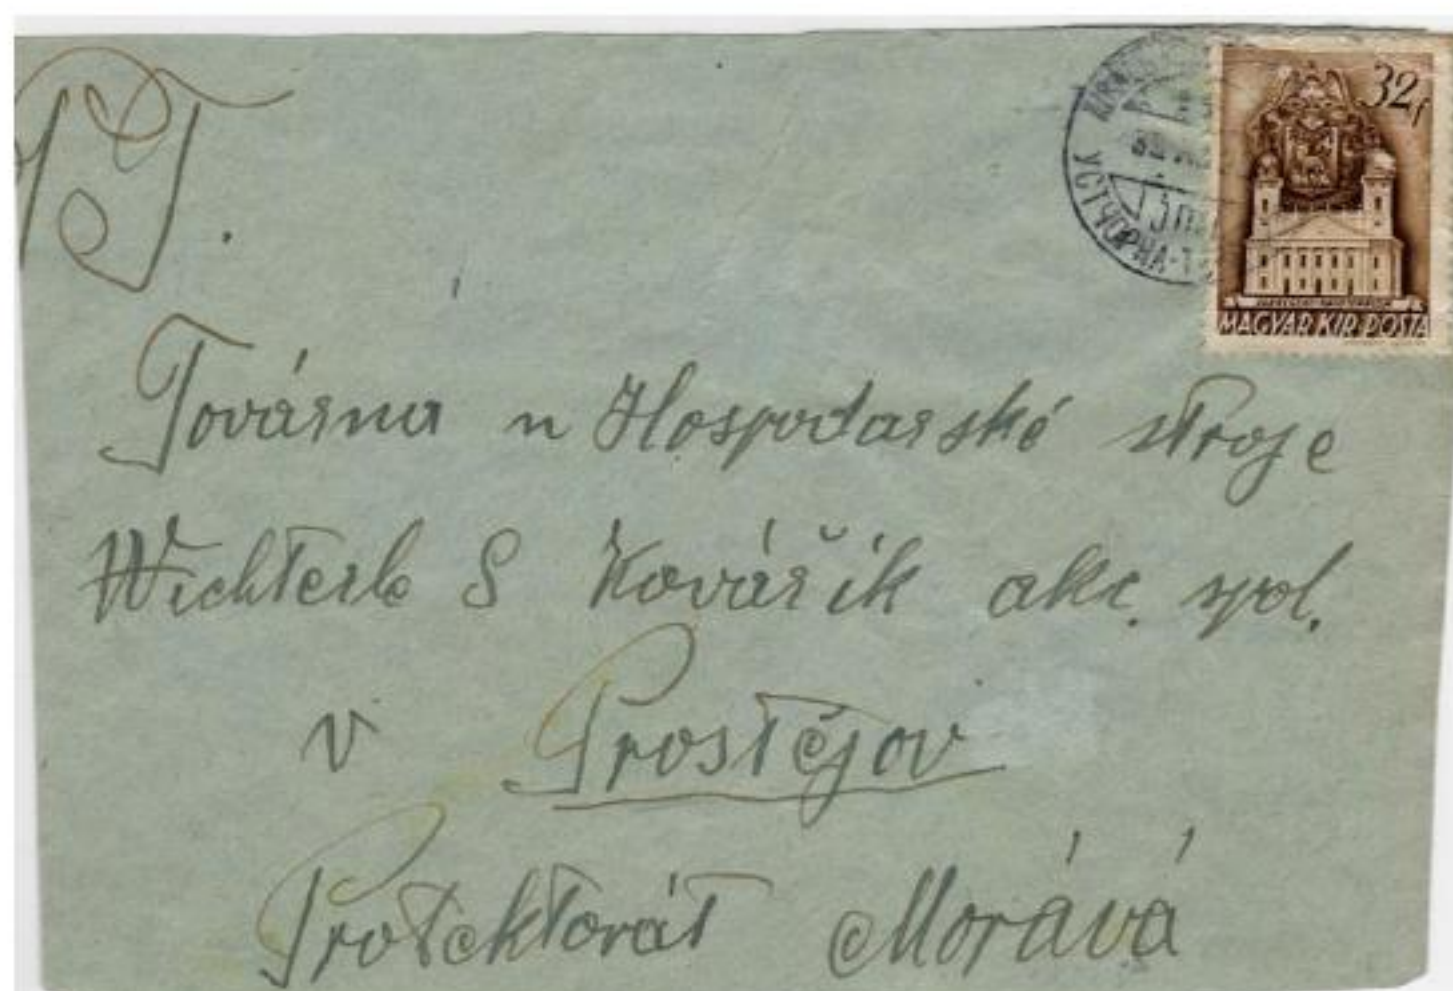 P.T.
32f
УСТЧОРНА-Т
MAGYAR KIR. POSTA
Továrna n Hospodarské stroje
Wichterle S Kovářík akc. spol.
v Prostějov
Protektorát Morává